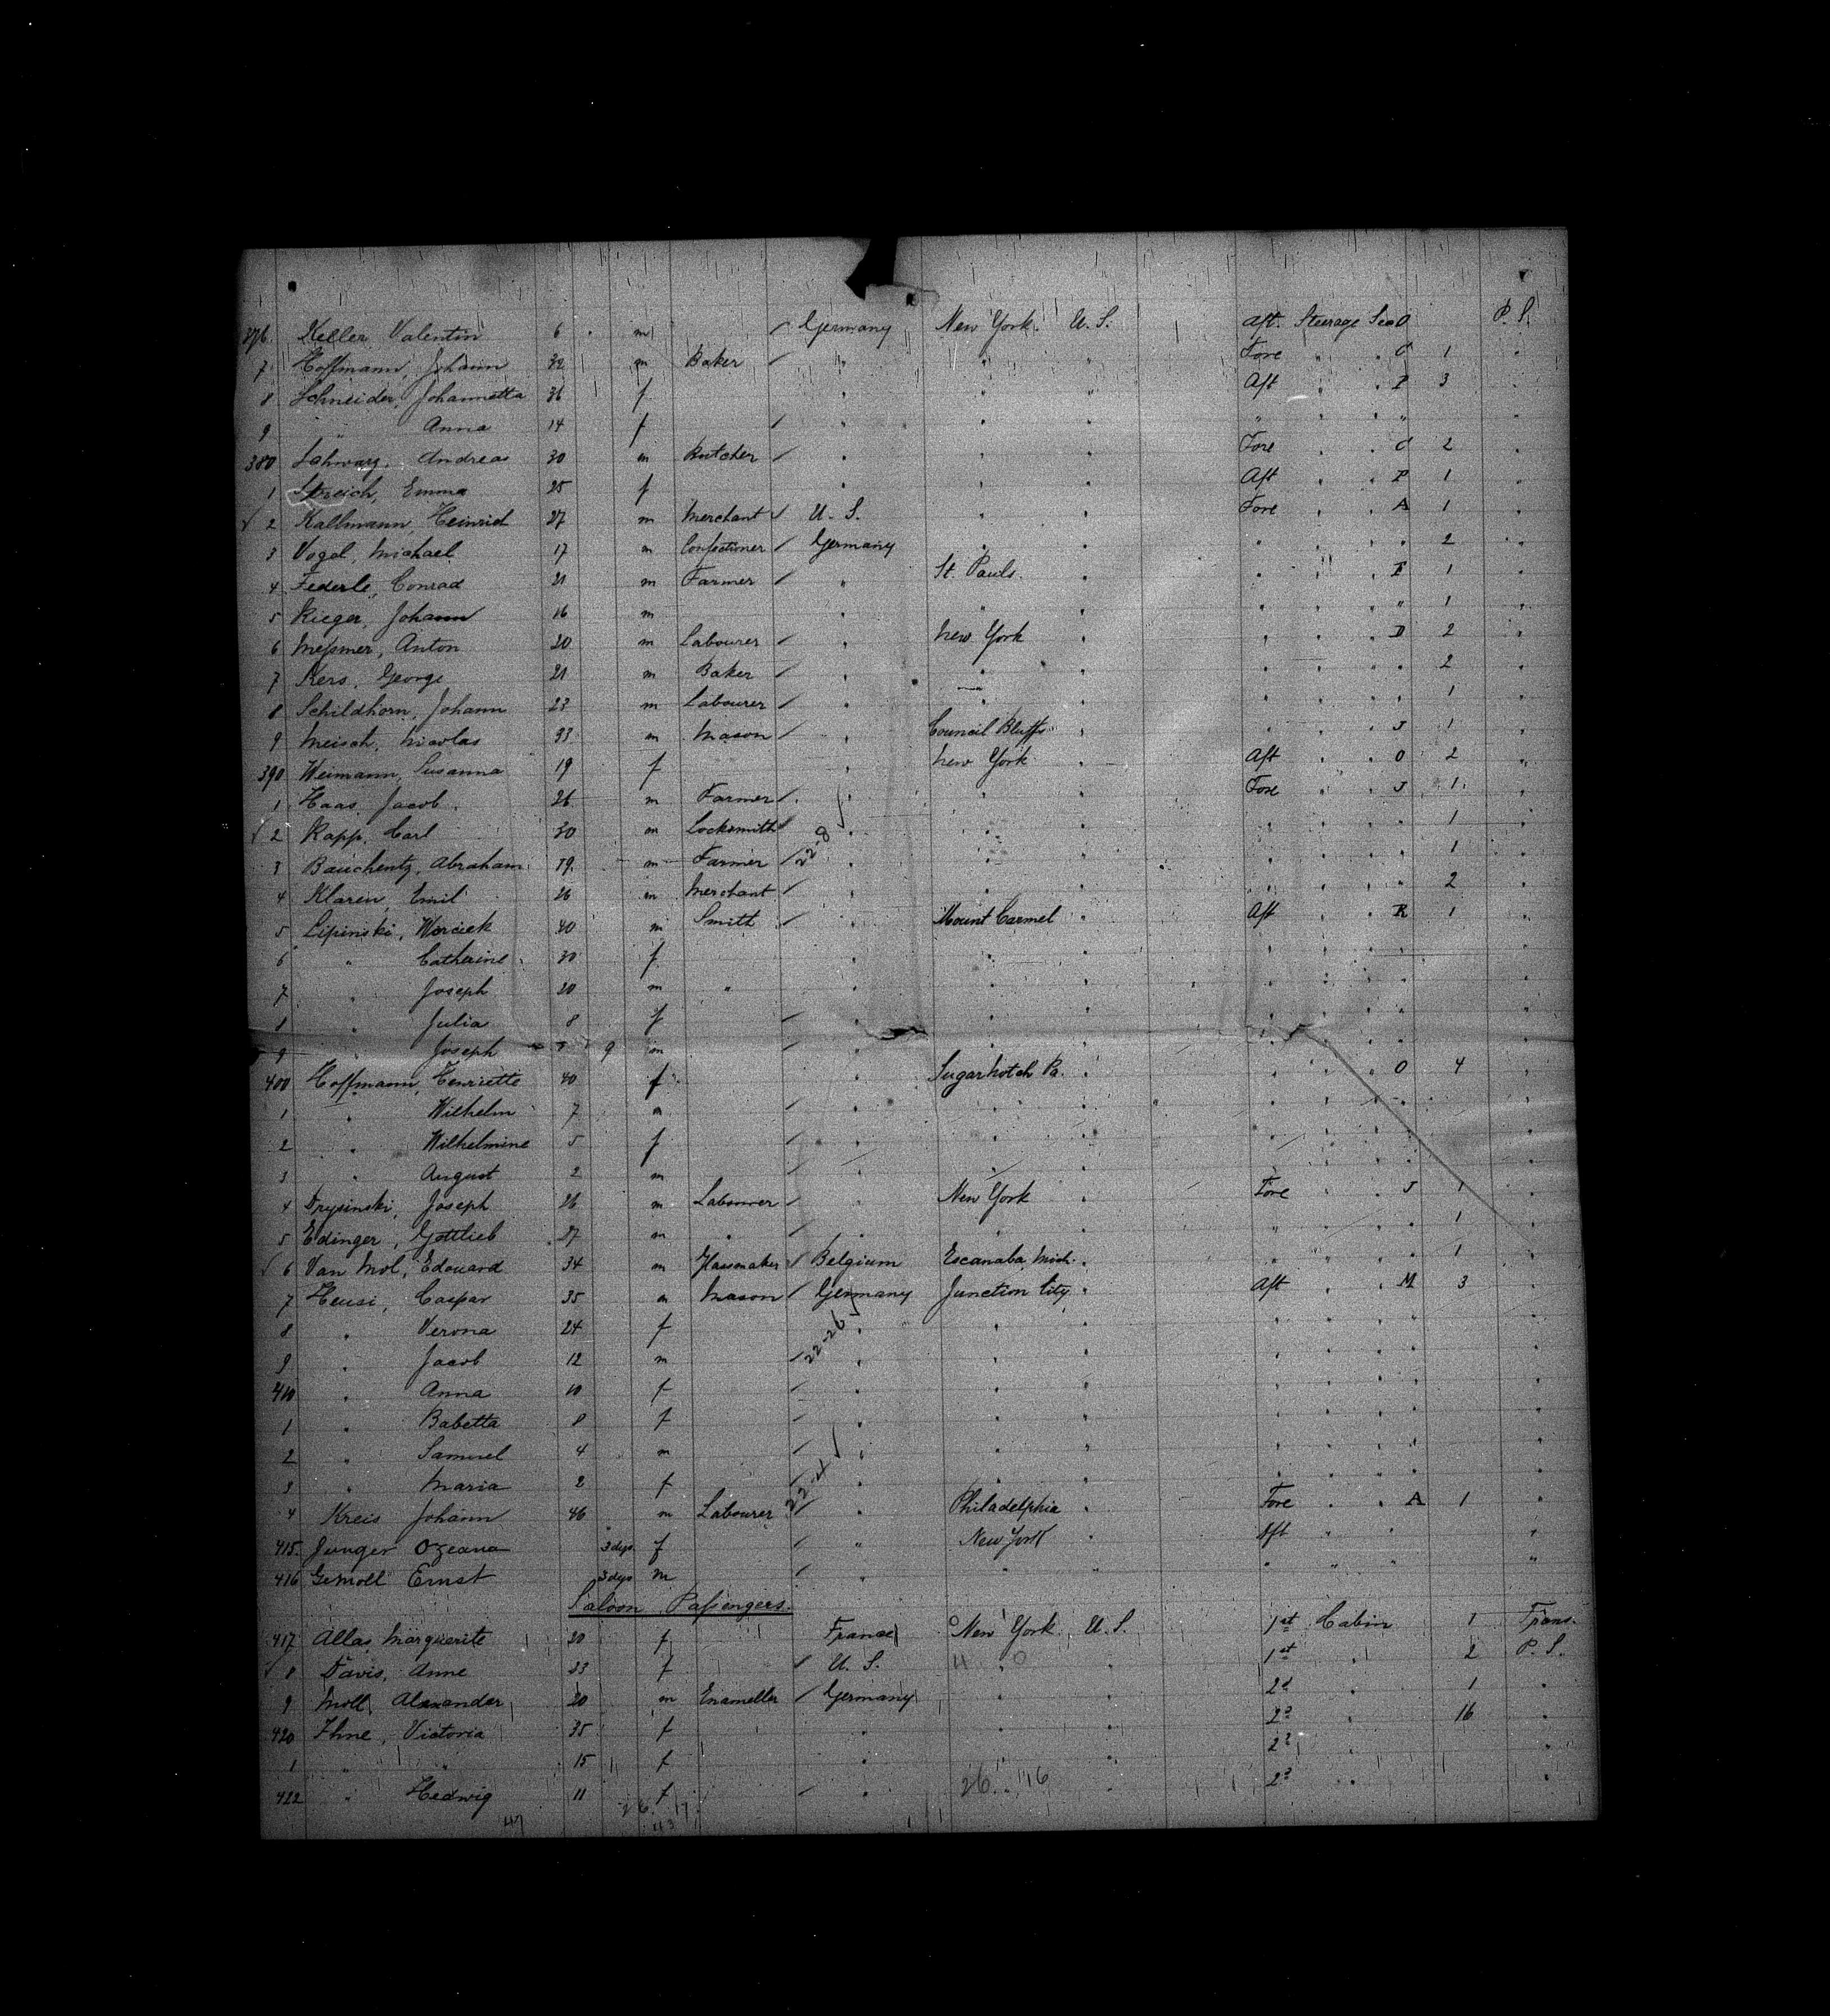 376 Keller Valentin 6 m Germany New York U. S. Aft. Steerage Sec O P. S.
7 Hoffmann, Johann 32 m Baker " " " Fore " " C 1 "
8 Schneider, Johannetta 36 f " " " Aft " " P 3 "
9 " Anna 14 f " " " " " " " "
380 Schwarz, Andreas 30 m Butcher " " " Fore " " C 2 "
1 Streich, Emma 25 f " " " Aft " " P 1 "
2 Kallmann, Heinrich 27 m Merchant U. S. " " Fore " " A 1 "
3 Vogel, Michael 17 m Confectioner Germany " " " " " " 2 "
4 Federle, Conrad 21 m Farmer " St. Pauls " " " " F 1 "
5 Rieger, Johann 16 m " " " " " " " 1 "
6 Messmer, Anton 20 m Labourer " New York " " " " D 2 "
7 Kers, George 21 m Baker " " " " " " " 2 "
8 Schildhorn, Johann 23 m Labourer " " " " " " " 1 "
9 Meisch, Nicolas 33 m Mason " Council Bluffs " " " " J 1 "
390 Weimann, Susanna 19 f " New York " Aft " " O 2 "
1 Haas, Jacob 26 m Farmer " " " Fore " " J 1 "
2 Rapp, Carl 30 m Locksmith " " " " " " " 1 "
3 Bauchentz, Abraham 19 m Farmer 22-8 " " " " " " " 1 "
4 Klaren, Emil 26 m Merchant " " " " " " " 2 "
5 Lipinski, Worciek 40 m Smith " Mount Carmel " Aft " " R 1 "
6 " Catherine 30 f " " " " " " " "
7 " Joseph 20 m " " " " " " " " "
8 " Julia 8 f " " " " " " " "
9 " Joseph 9 m " " " " " " " "
400 Hoffmann, Henriette 40 f " Sugarnotch Pa. " " " " O 4 "
1 " Wilhelm 7 m " " " " " " " "
2 " Wilhelmine 5 f " " " " " " " "
3 " August 2 m " " " " " " " "
4 Drysinski, Joseph 26 m Labourer " New York " Fore " " J 1 "
5 Edinger, Gottlieb 27 m " " " " " " " " 1 "
6 Van Mol, Edouard 34 m Glassmaker Belgium Escanaba, Mich. " " " " " 1 "
7 Heusi, Caspar 35 m Mason Germany Junction City " Aft " " M 3 "
8 " Verona 24 f 22-26 " " " " " " " "
9 " Jacob 12 m " " " " " " " "
410 " Anna 10 f " " " " " " " "
1 " Babetta 8 f " " " " " " " "
2 " Samuel 4 m " " " " " " " "
3 " Maria 2 f " " " " " " " "
4 Kreis Johann 46 m Labourer " Philadelphia " Fore " " A 1 "
415 Junger Ozeana 3 dys f " New York " Aft " " "
416 Gemoll Ernst 3 dys m " " " " " " "
Saloon Passengers.
417 Allas Marguerite 20 f France New York U. S. 1st Cabin 1 Trans.
8 Davis, Anne 33 f U. S. " " 1st " 2 P. S.
9 Moll, Alexander 20 m Enameller Germany " " 2d " 1 "
420 Ihne, Victoria 35 f " " " 2d " 16 "
1 " " 15 f " " " 2d " "
422 " Hedwig 11 f " " " 2d " "
26 16
26 17
47 43